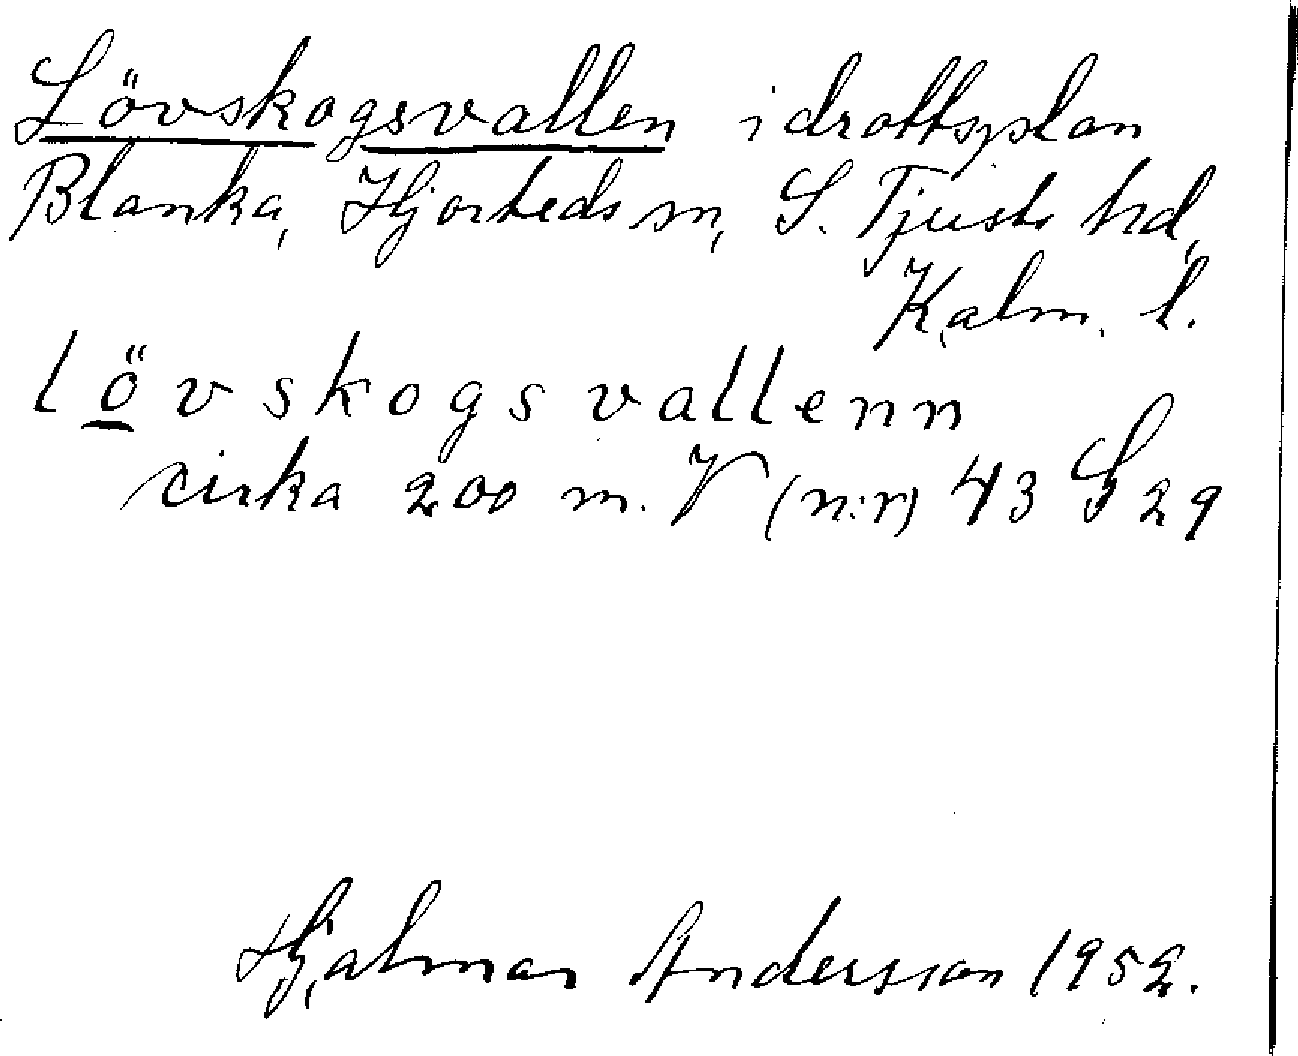 Lövskogsvallen idrottsplan
Blanka, Hjorteds sn, S. Tjusts hd,
Kalm. l.
lövskogsvallenn
cirka 200 m. V (n:r) 43 S 29
Hjalmar Andersson 1952.